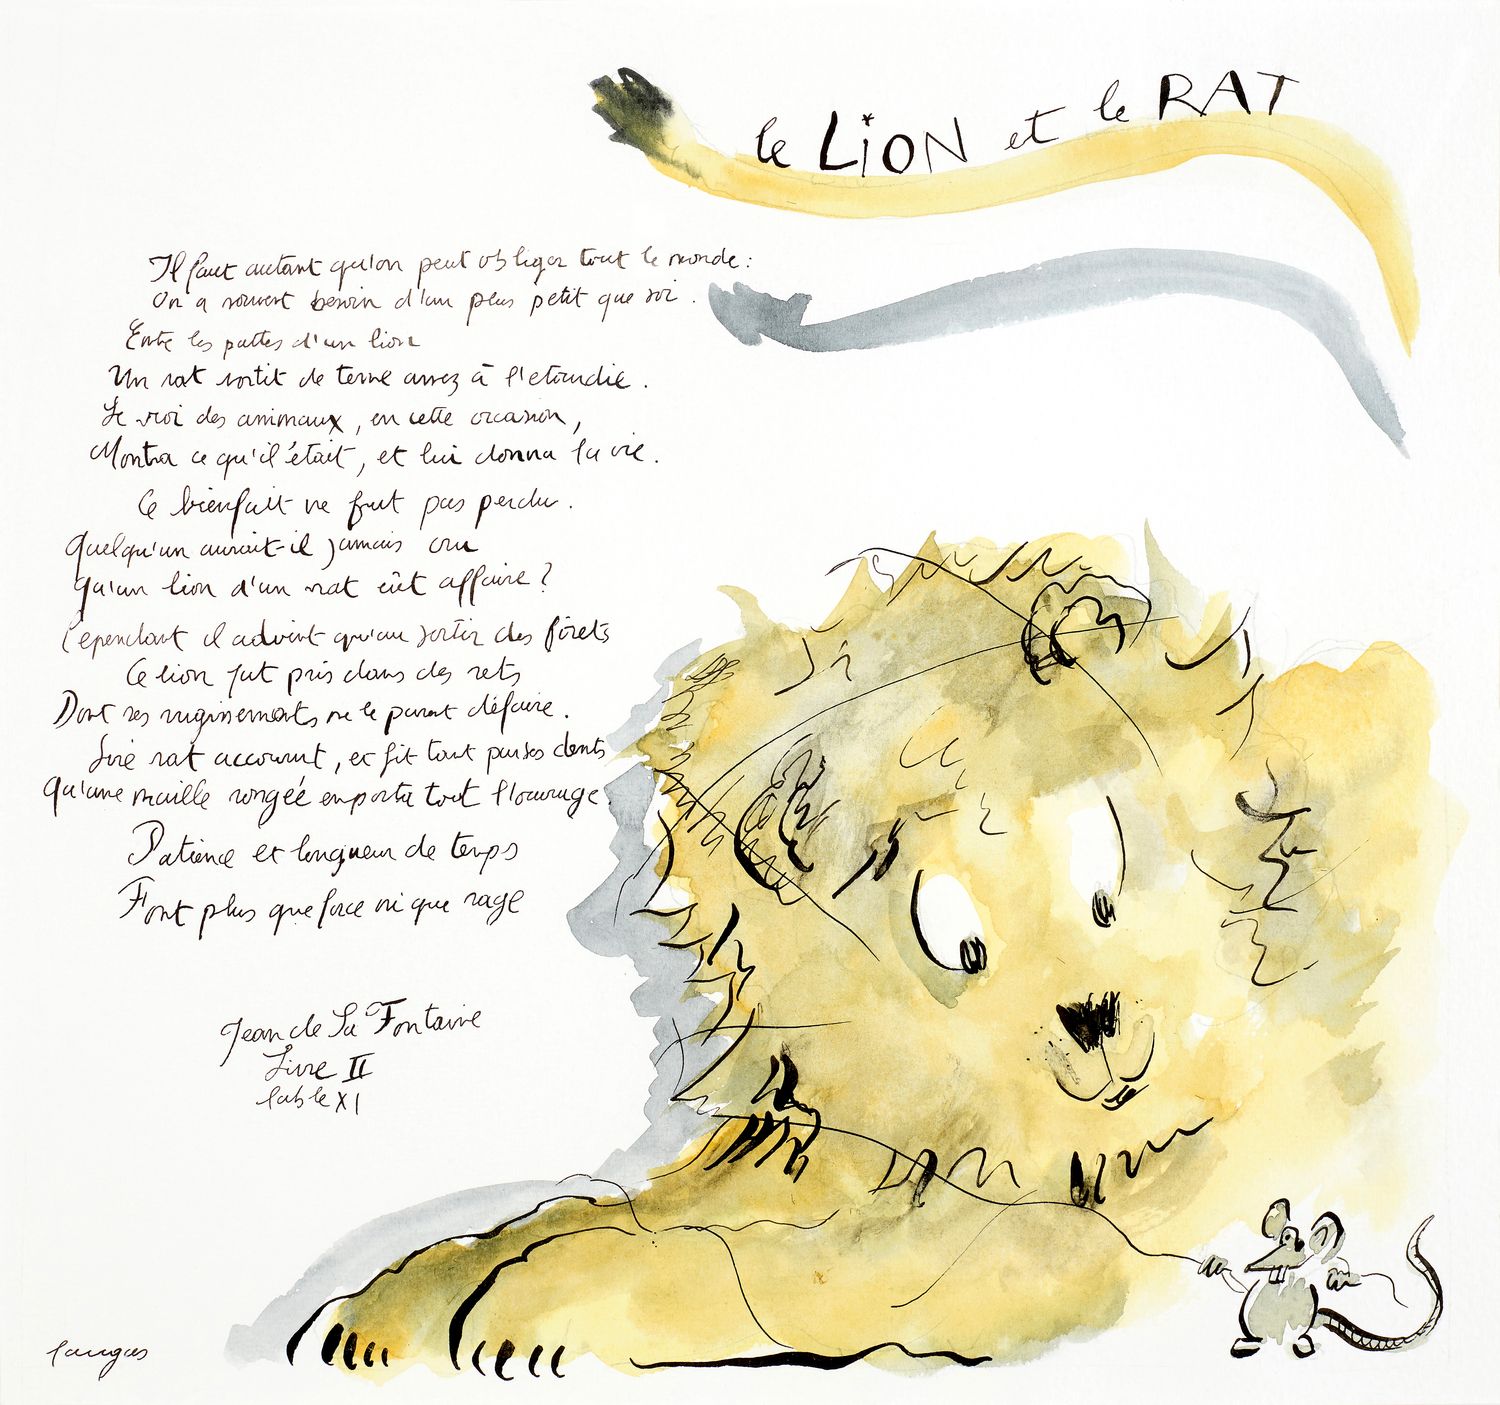 le LION et le RAT
Il faut autant qu'on peut obliger tout le monde :
On a souvent besoin d'un plus petit que soi .
Entre les pattes d'un lion
Un rat sortit de terre assez à l'etourdie .
Le roi des animaux , en cette occasion ,
Montra ce qu'il était , et lui donna la vie .
Ce bienfait ne fut pas perdu .
Quelqu'un aurait-il jamais cru
Qu'un lion d'un rat eût affaire ?
Cependant il advint qu'au sortir des forets
Ce lion fut pris dans des rets
Dont ses rugissements ne le purent défaire .
Sire rat accourut , et fit tant par ses dents
Qu'une maille rongée emporta tout l'ouvrage .
Patience et longueur de temps
Font plus que force ni que rage
Jean de La Fontaine
Livre II
fable XI